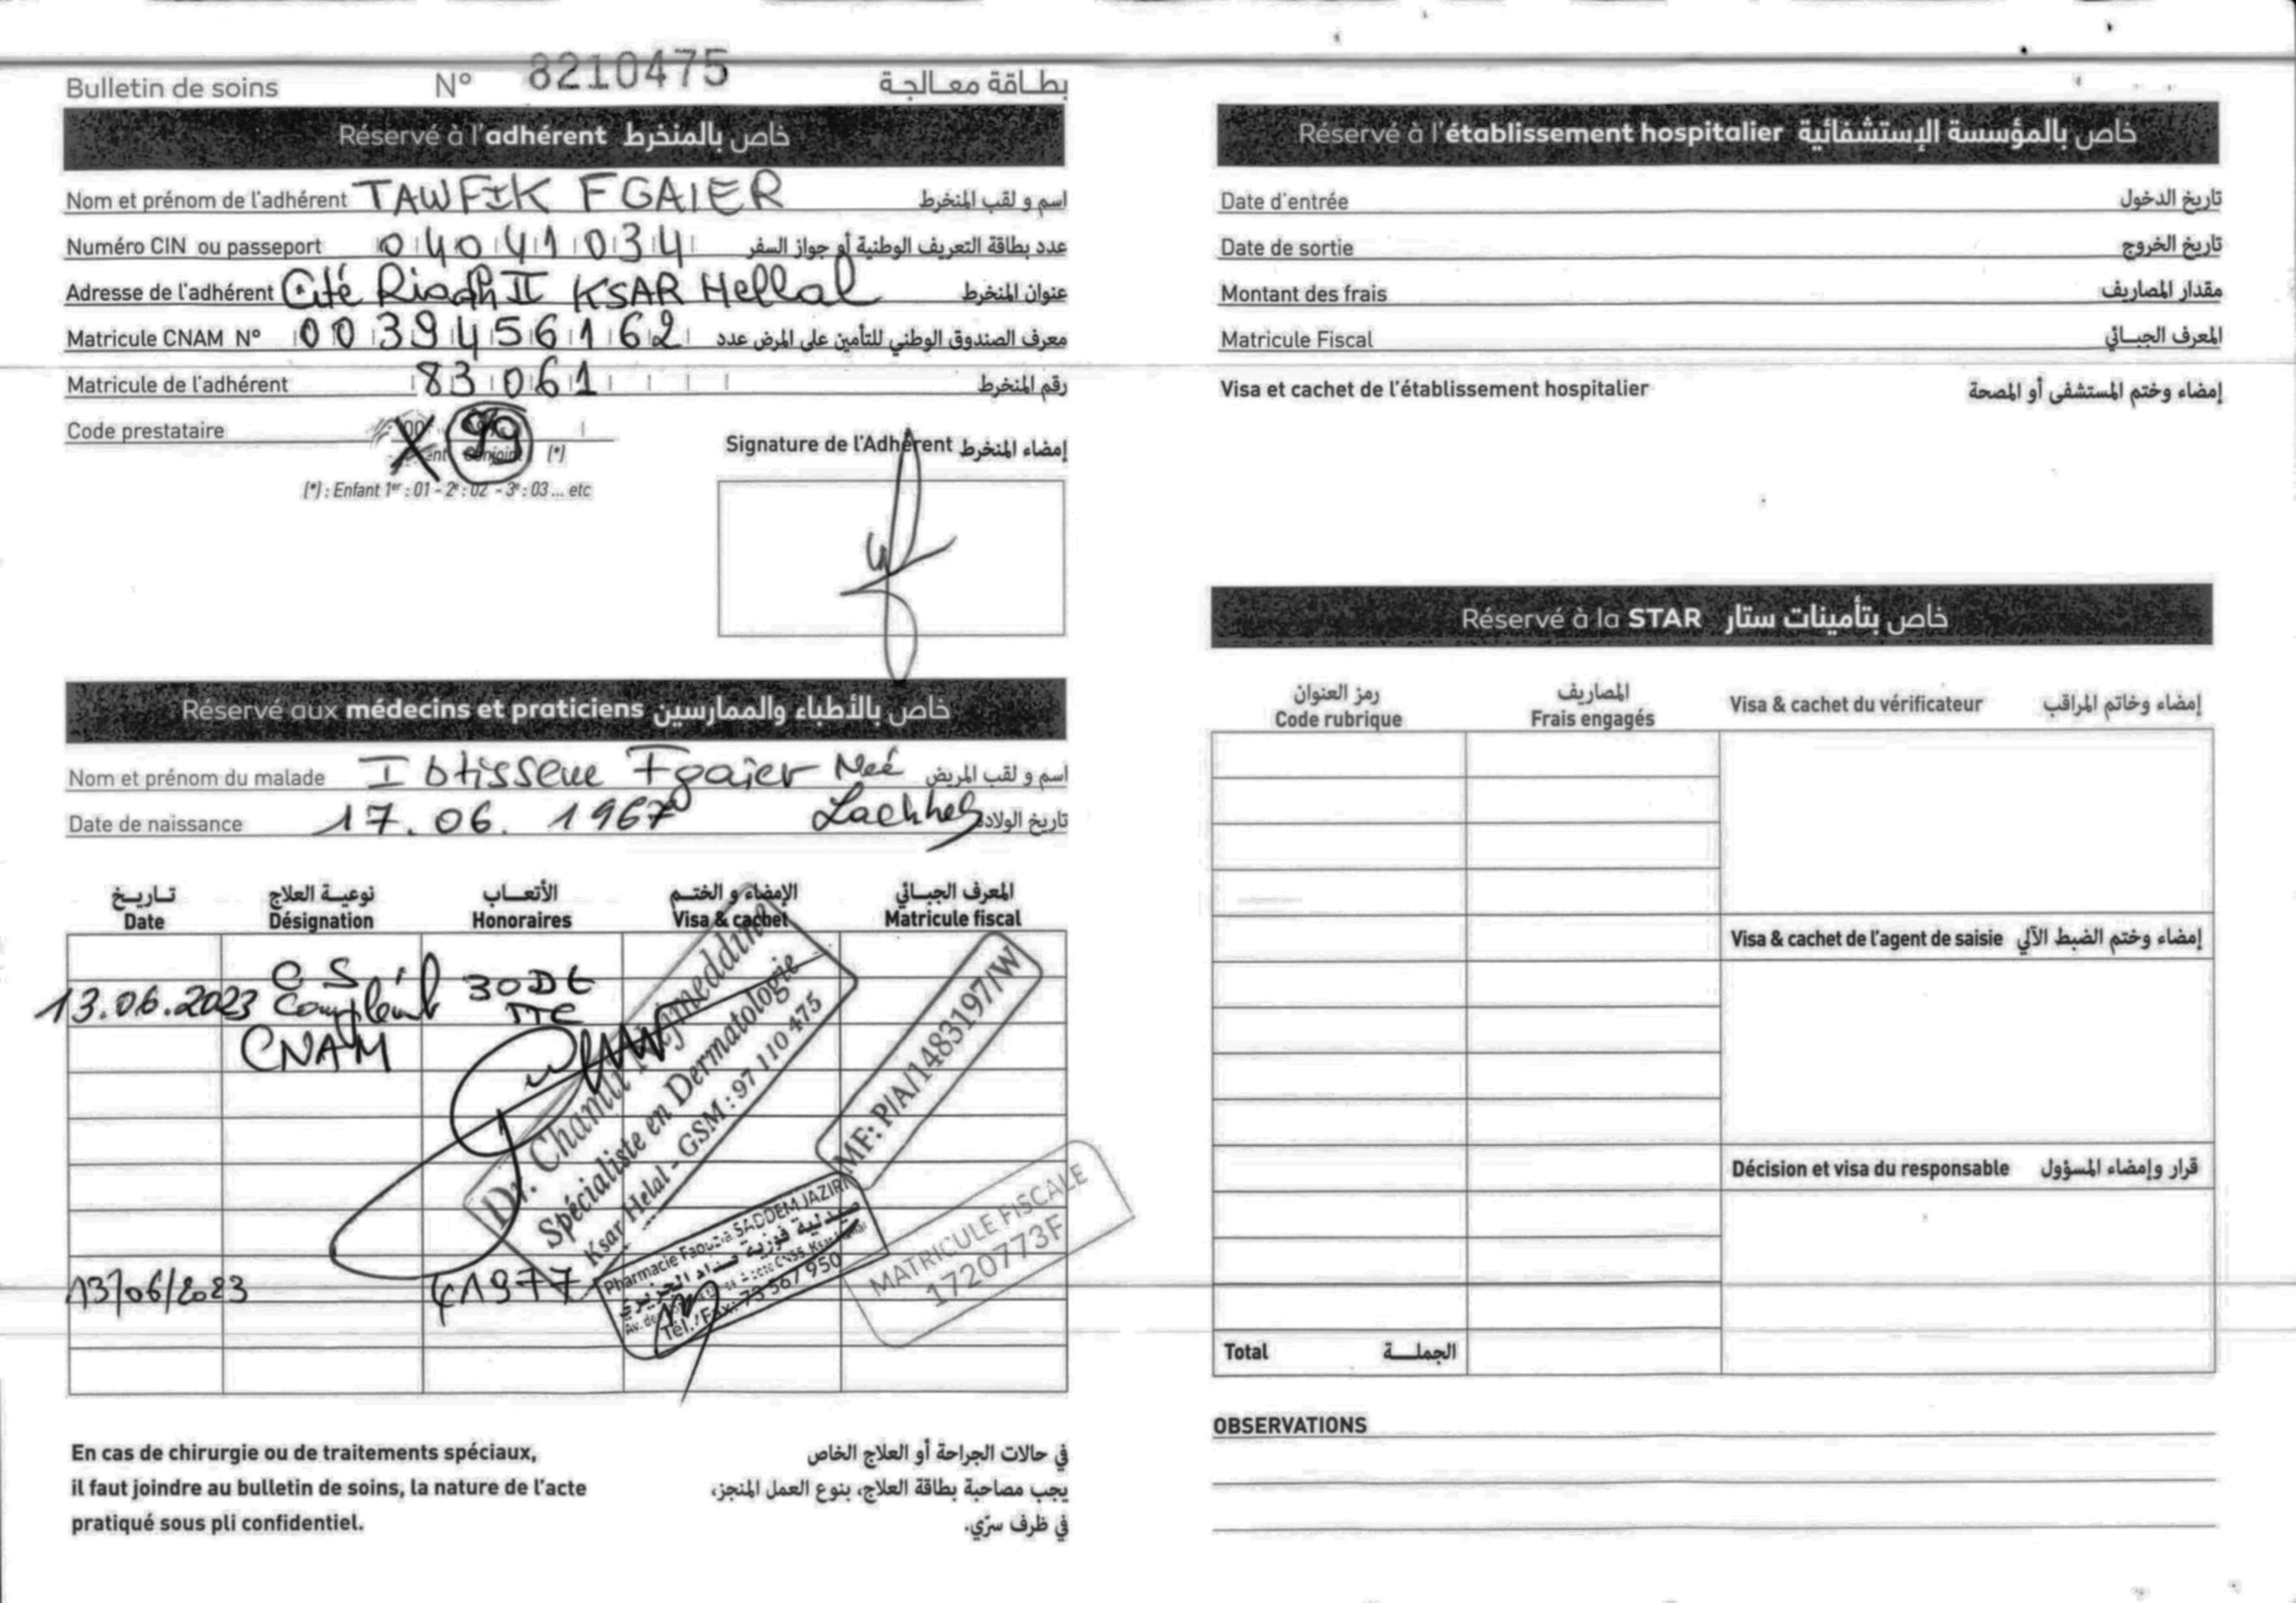 Bulletin de soins N° 8210475 بطاقة معالجة
Réservé à l'adhérent خاص بالمنخرط
Nom et prénom de l'adhérent TAWFIK FGAIER اسم و لقب المنخرط
Numéro CIN ou passeport 04041034 عدد بطاقة التعريف الوطنية أو جواز السفر
Adresse de l'adhérent Cité Riadh II KSAR Hellal عنوان المنخرط
Matricule CNAM N° 0039456162 معرف الصندوق الوطني للتأمين على المرض عدد
Matricule de l'adhérent 83061 رقم المنخرط
Code prestataire 00 99
Conjoint (*)
(*) : Enfant 1er : 01 - 2e : 02 - 3e : 03 ... etc
Signature de l'Adhérent إمضاء المنخرط
Réservé aux médecins et praticiens خاص بالأطباء والممارسين
Nom et prénom du malade Ibtisseme Fgaier Neé اسم و لقب المريض
Date de naissance 17.06.1967 Lachheb تاريخ الولادة
تاريخ نوعية العلاج الأتعاب الإمضاء و الختم المعرف الجبائي
Date Désignation Honoraires Visa & cachet Matricule fiscal
13.06.2023 CS 30DT
TTC
CNAM
Dr. Chamli Nejmeddine
Spécialiste en Dermatologie
Ksar Helal - GSM : 97 110 475
MF: P/A/1483197/W
13/06/2023 41977
Pharmacie Faouzia SADDEM JAZIRI
صيدلية فوزية صدام الجزيري
Tél./Fax: 73 567 950
MATRICULE FISCALE
1720773F
En cas de chirurgie ou de traitements spéciaux,
il faut joindre au bulletin de soins, la nature de l'acte
pratiqué sous pli confidentiel.
في حالات الجراحة أو العلاج الخاص
يجب مصاحبة بطاقة العلاج، بنوع العمل المنجز،
في ظرف سرّي.
Réservé à l'établissement hospitalier خاص بالمؤسسة الإستشفائية
Date d'entrée تاريخ الدخول
Date de sortie تاريخ الخروج
Montant des frais مقدار المصاريف
Matricule Fiscal المعرف الجبائي
Visa et cachet de l'établissement hospitalier إمضاء وختم المستشفى أو المصحة
Réservé à la STAR خاص بتأمينات ستار
رمز العنوان المصاريف
Code rubrique Frais engagés Visa & cachet du vérificateur إمضاء وخاتم المراقب
Visa & cachet de l'agent de saisie إمضاء وختم الضبط الآلي
Décision et visa du responsable قرار وإمضاء المسؤول
Total الجملة
OBSERVATIONS